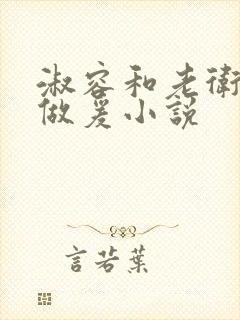 淑容和老衛
做爰小說
言若葉